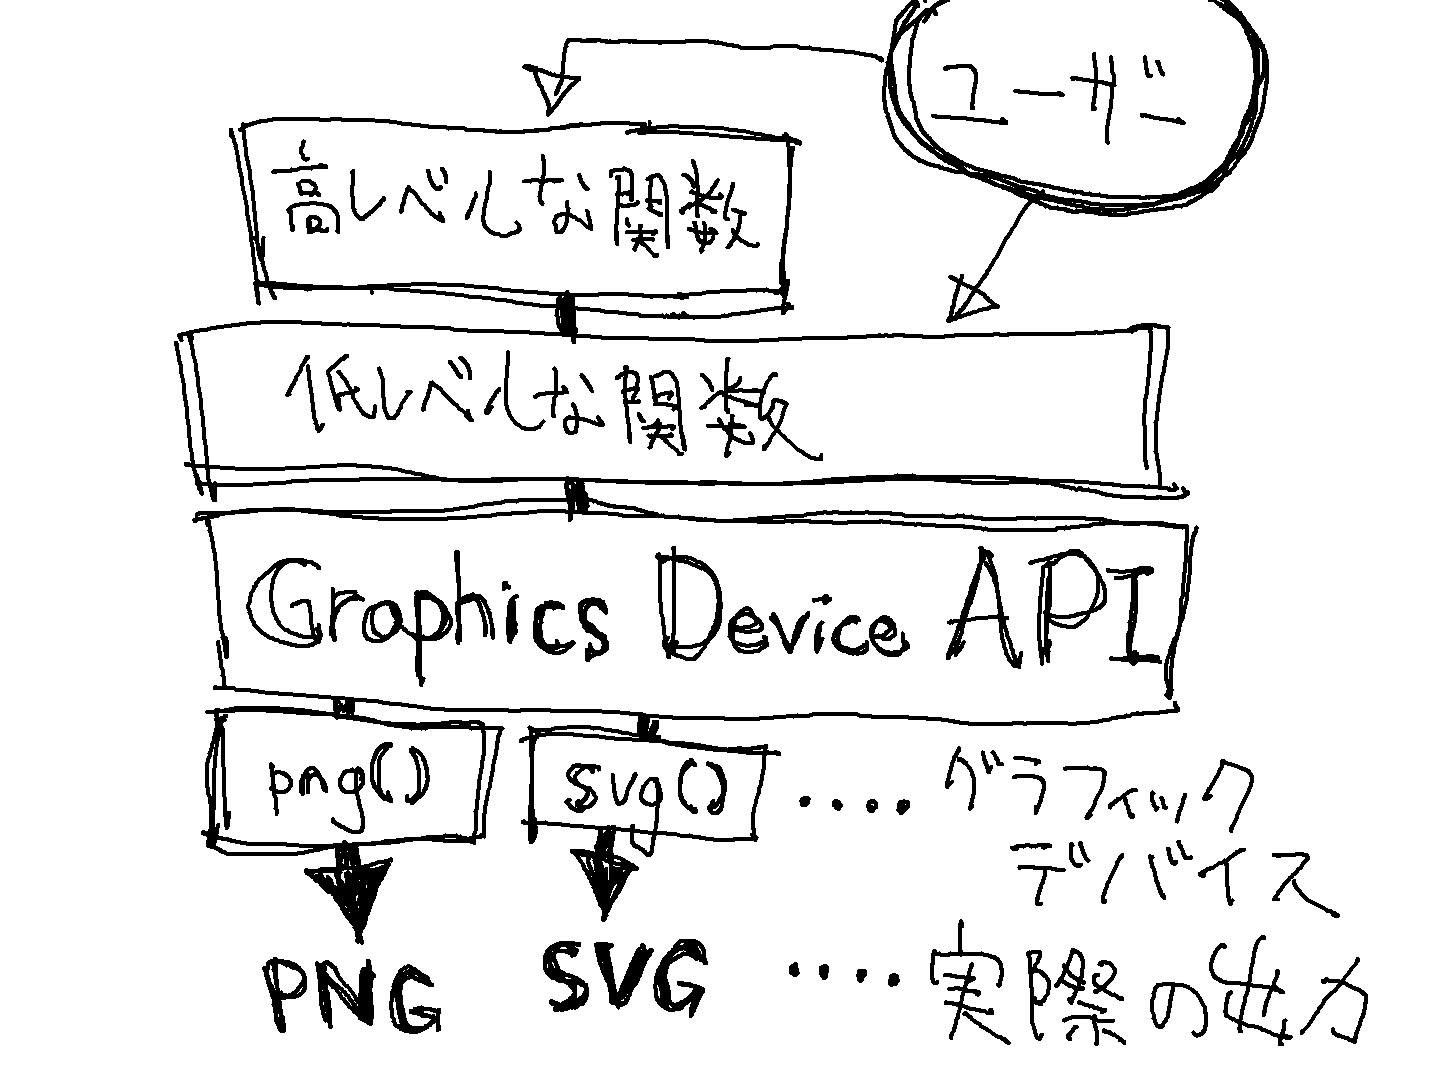 ユーザー
高レベルな関数
低レベルな関数
Graphics Device API
png() svg() ････ グラフィック
デバイス
PNG SVG ････ 実際の出力